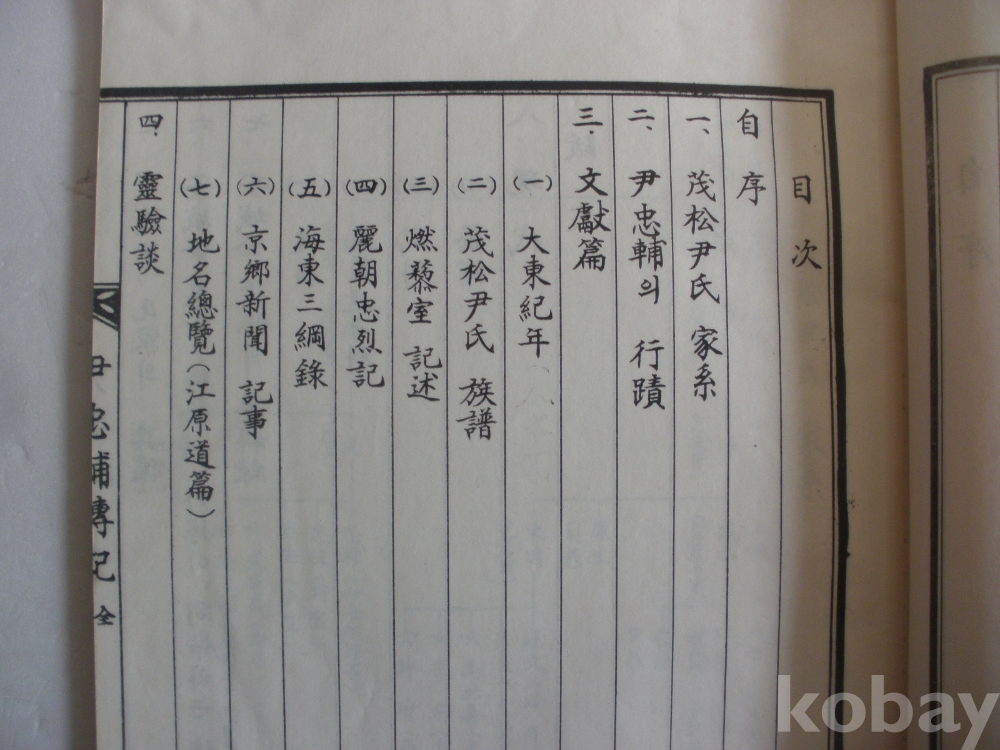 目次
自序
一、茂松尹氏 家系
二、尹忠輔의 行蹟
三. 文獻篇
(一) 大東紀年
(二) 茂松尹氏 族譜
(三) 燃藜室 記述
(四) 麗朝忠烈記
(五) 海東三綱錄
(六) 京鄉新聞 記事
(七) 地名總覽(江原道篇)
四. 靈驗談
尹忠輔傳記 全
kobay